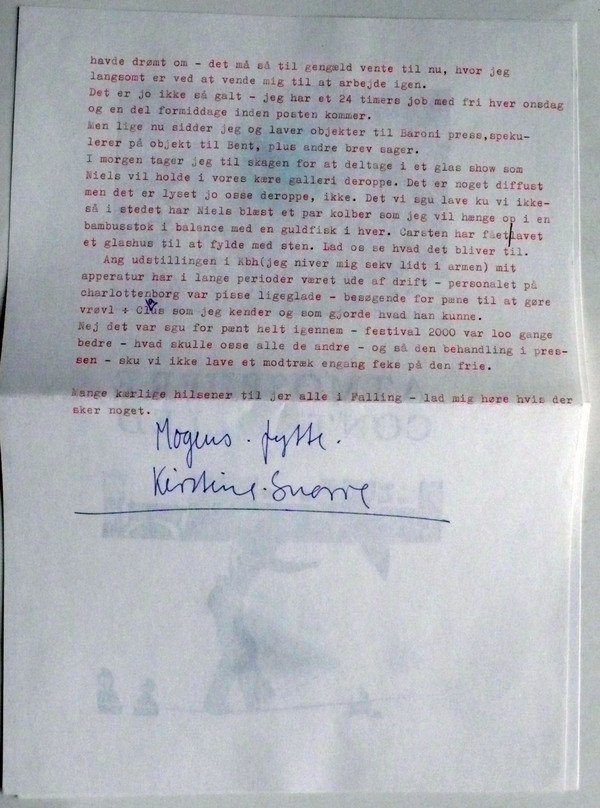 havde drømt om - det må så til gengæld vente til nu, hvor jeg
langsomt er ved at vende mig til at arbejde igen.
Det er jo ikke så galt - jeg har et 24 timers job med fri hver onsdag
og en del formiddage inden posten kommer.
Men lige nu sidder jeg og laver objekter til Baroni press,speku-
lerer på objekt til Bent, plus andre brev sager.
I morgen tager jeg til skagen for at deltage i et glas show som
Niels vil holde i vores kære galleri deroppe. Det er noget diffust
men det er lyset jo osse deroppe, ikke. Det vi sgu lave ku vi ikke-
så i stedet har Niels blæst et par kolber som jeg vil hænge op i en
bambusstok i balance med en guldfisk i hver. Carsten har fået lavet
et glashus til at fylde med sten. Lad os se hvad det bliver til.
Ang udstillingen i Kbh(jeg niver mig sekv lidt i armen) mit
apperatur har i lange perioder været ude af drift - personalet på
charlottenborg var pisse ligeglade - besøgende for pæne til at gøre
vrøvl ÷ som jeg kender og som gjorde hvad han kunne.
Nej det var sgu for pænt helt igennem - festival 2000 var loo gange
bedre - hvad skulle osse alle de andre - og så den behandling i pres-
sen - sku vi ikke lave et modtræk engang feks på den frie.
Mange kærlige hilsener til jer alle i Falling - lad mig høre hvis der
sker noget.
Mogens. Jytte.
Kirstine. Snorre